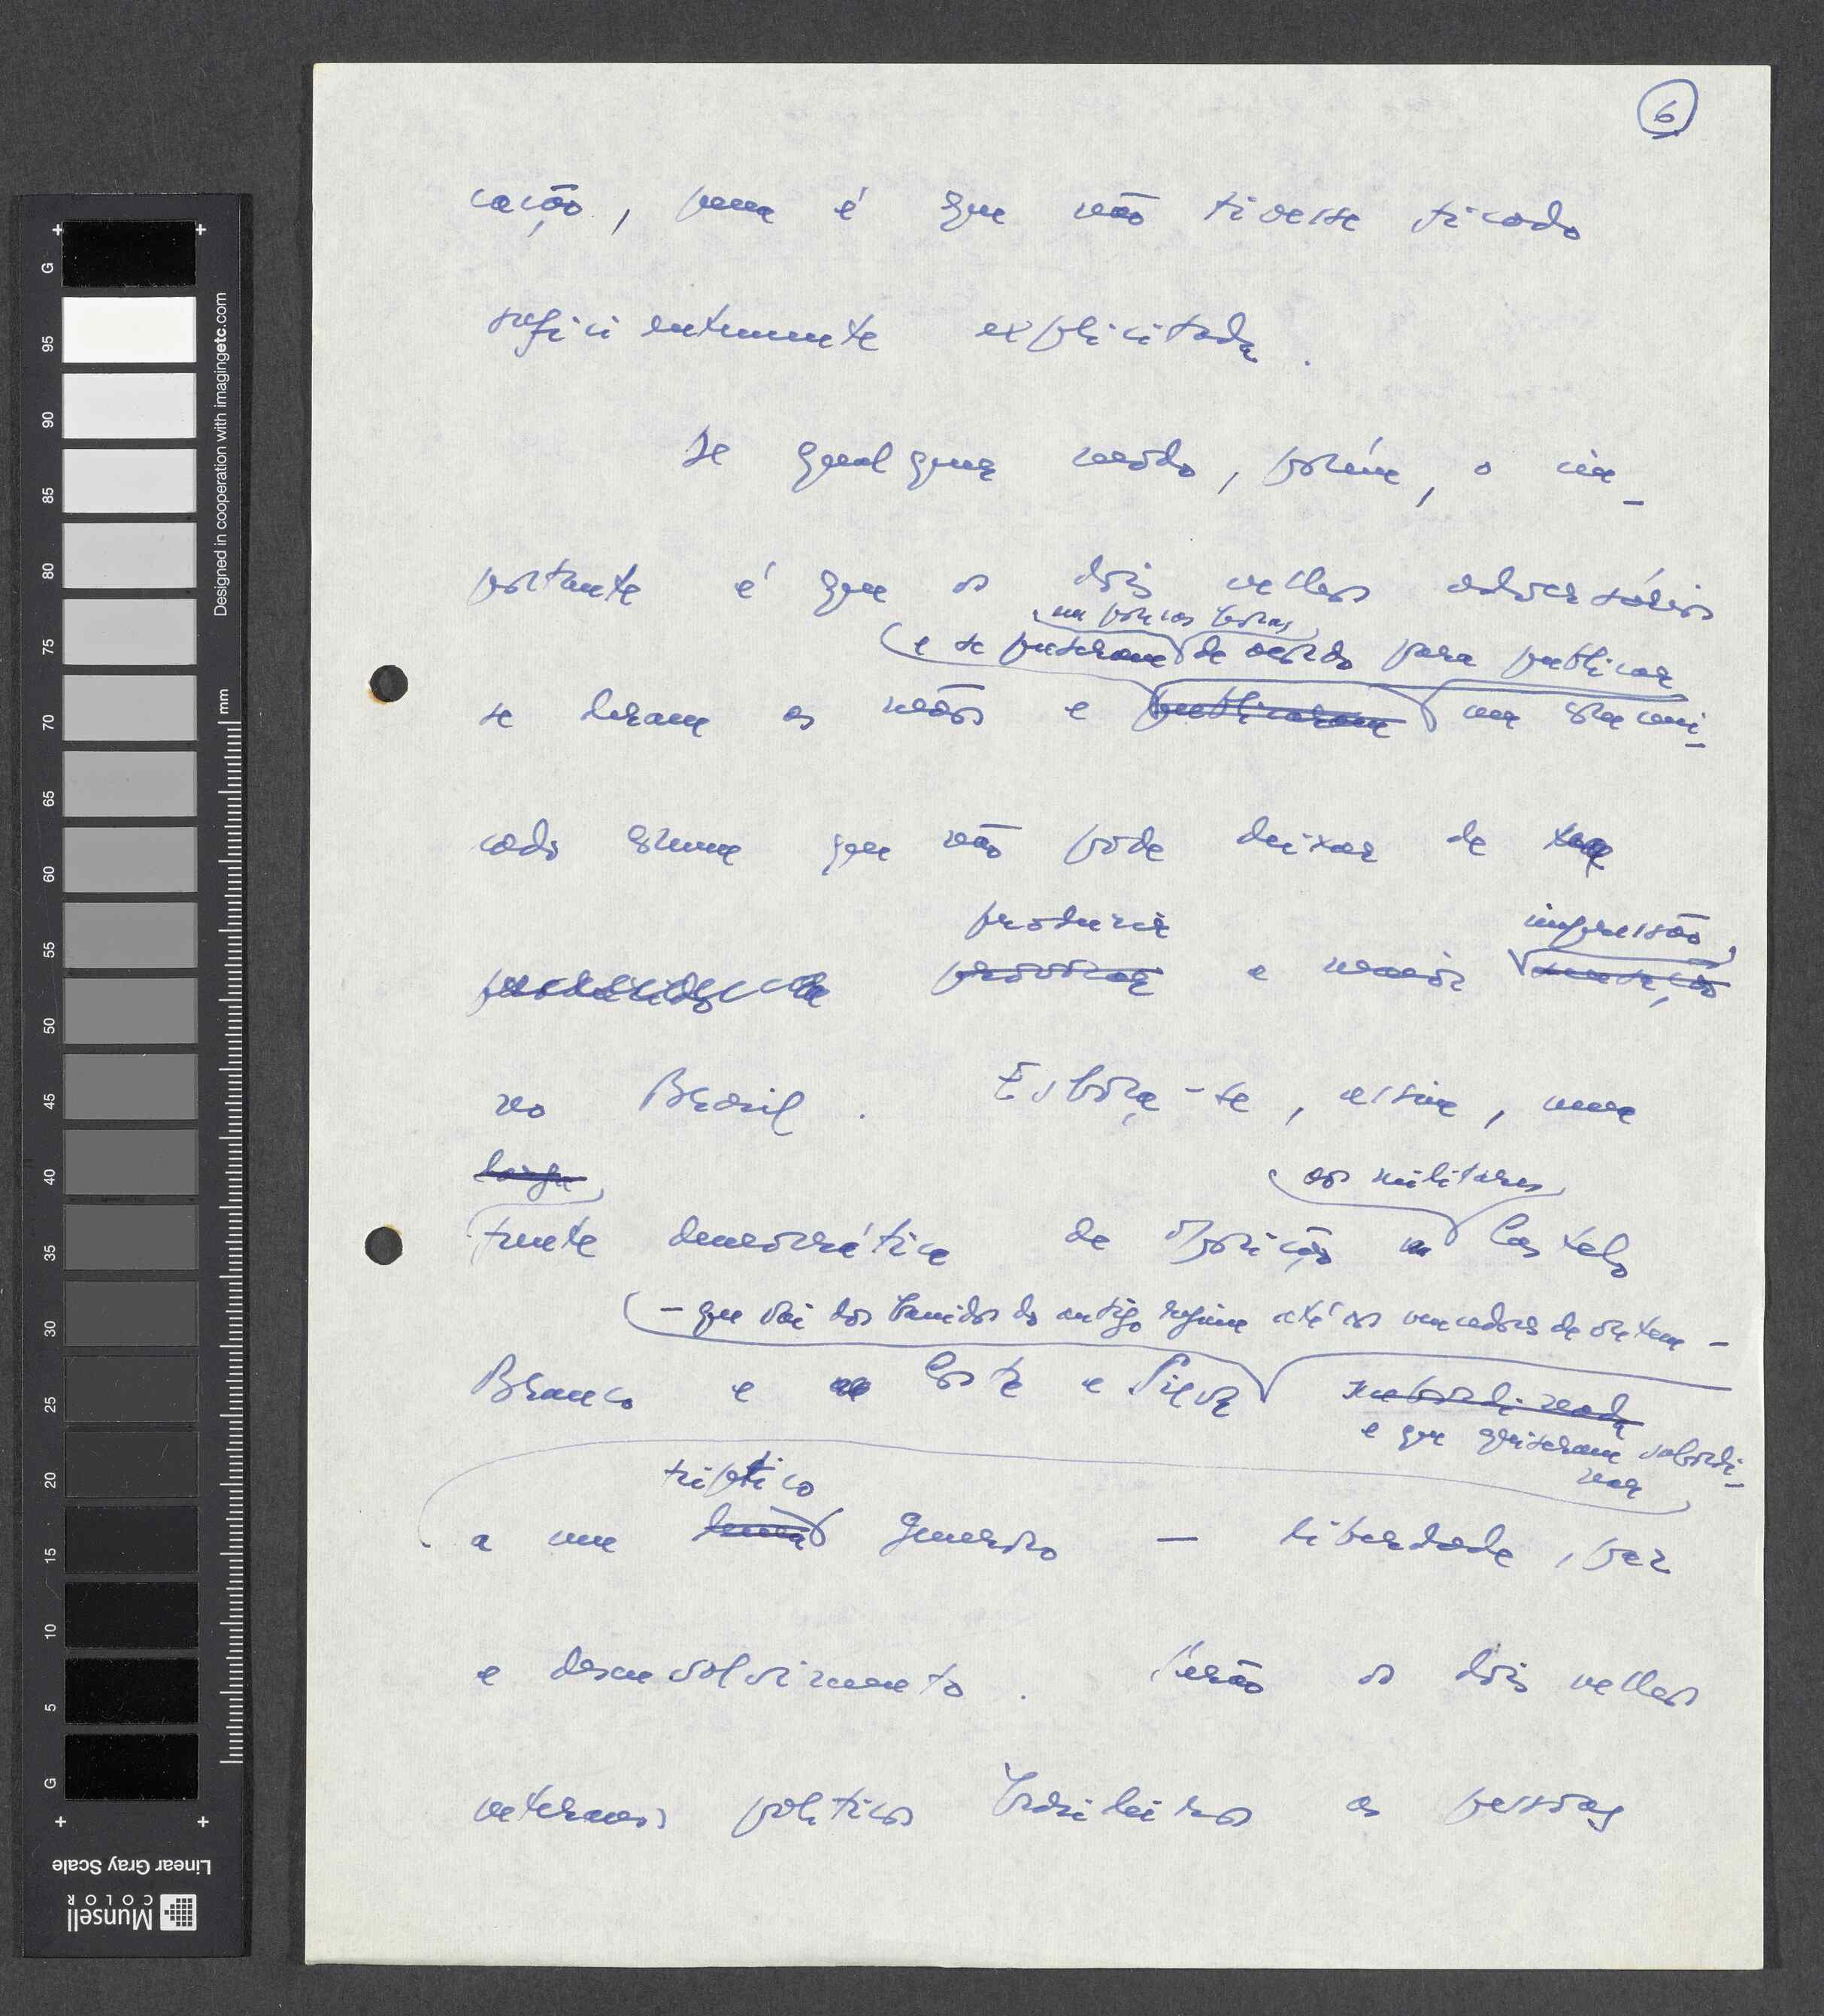 6
cação, pena é que não tivesse ficado
suficientemente explicitada.
De qualquer modo, porém, o im-
portante é que os dois velhos adversários
em poucas horas
e se puseram de acôrdo para publicar
se deram as mãos e publicaram um comuni-
cado comum que não pôde deixar de
produzir impressão
provocar a maior sensação
no Brasil. Esboça-se, assim, uma
larga aos militares
frente democrática de oposição a Castelo
— que vai dos banidos do antigo regime até os vencedores de ontem —
Branco e a Costa e Silva subordinada
e que quiseram subordi-
nar
tríptico
a um lema generoso — liberdade, paz
e desenvolvimento. Serão os dois velhos
veteranos políticos brasileiros as pessoas
G
95
90
85
80
75
70
65
60
55
50
45
40
35
30
25
20
15
10
5
G
mm
Designed in cooperation with imagingetc.com
Linear Gray Scale
Munsell
COLOR